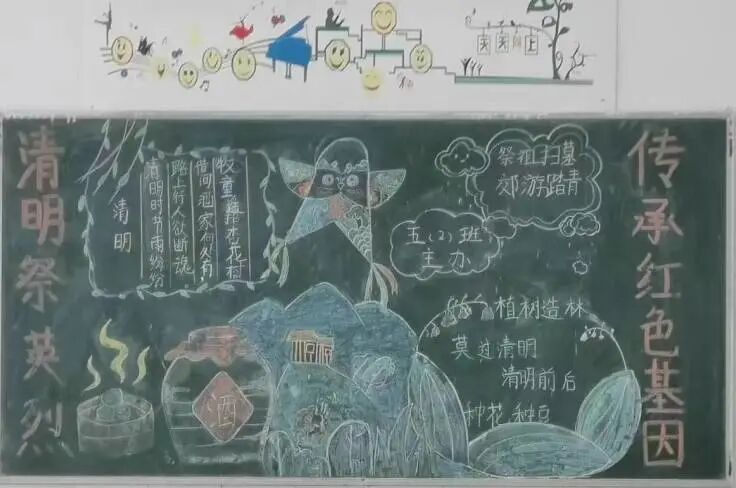 天天向上
清明祭英烈
清明
清明时节雨纷纷
路上行人欲断魂
借问酒家何处有
牧童遥指杏花村
祭祖扫墓
郊游踏青
五(2)班
主办
植树造林
莫过清明
清明前后
种花种豆
酒
传承红色基因